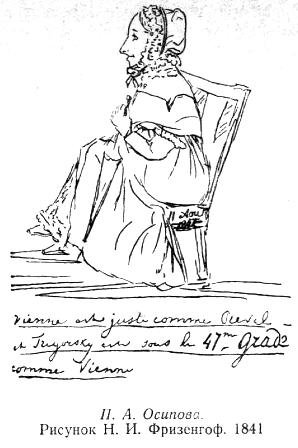 Aou
Vienne est juste comme
et Trigorsky est sous le 47me Grade
comme Vienne
П. А. Осипова.
Рисунок Н. И. Фризенгоф. 1841